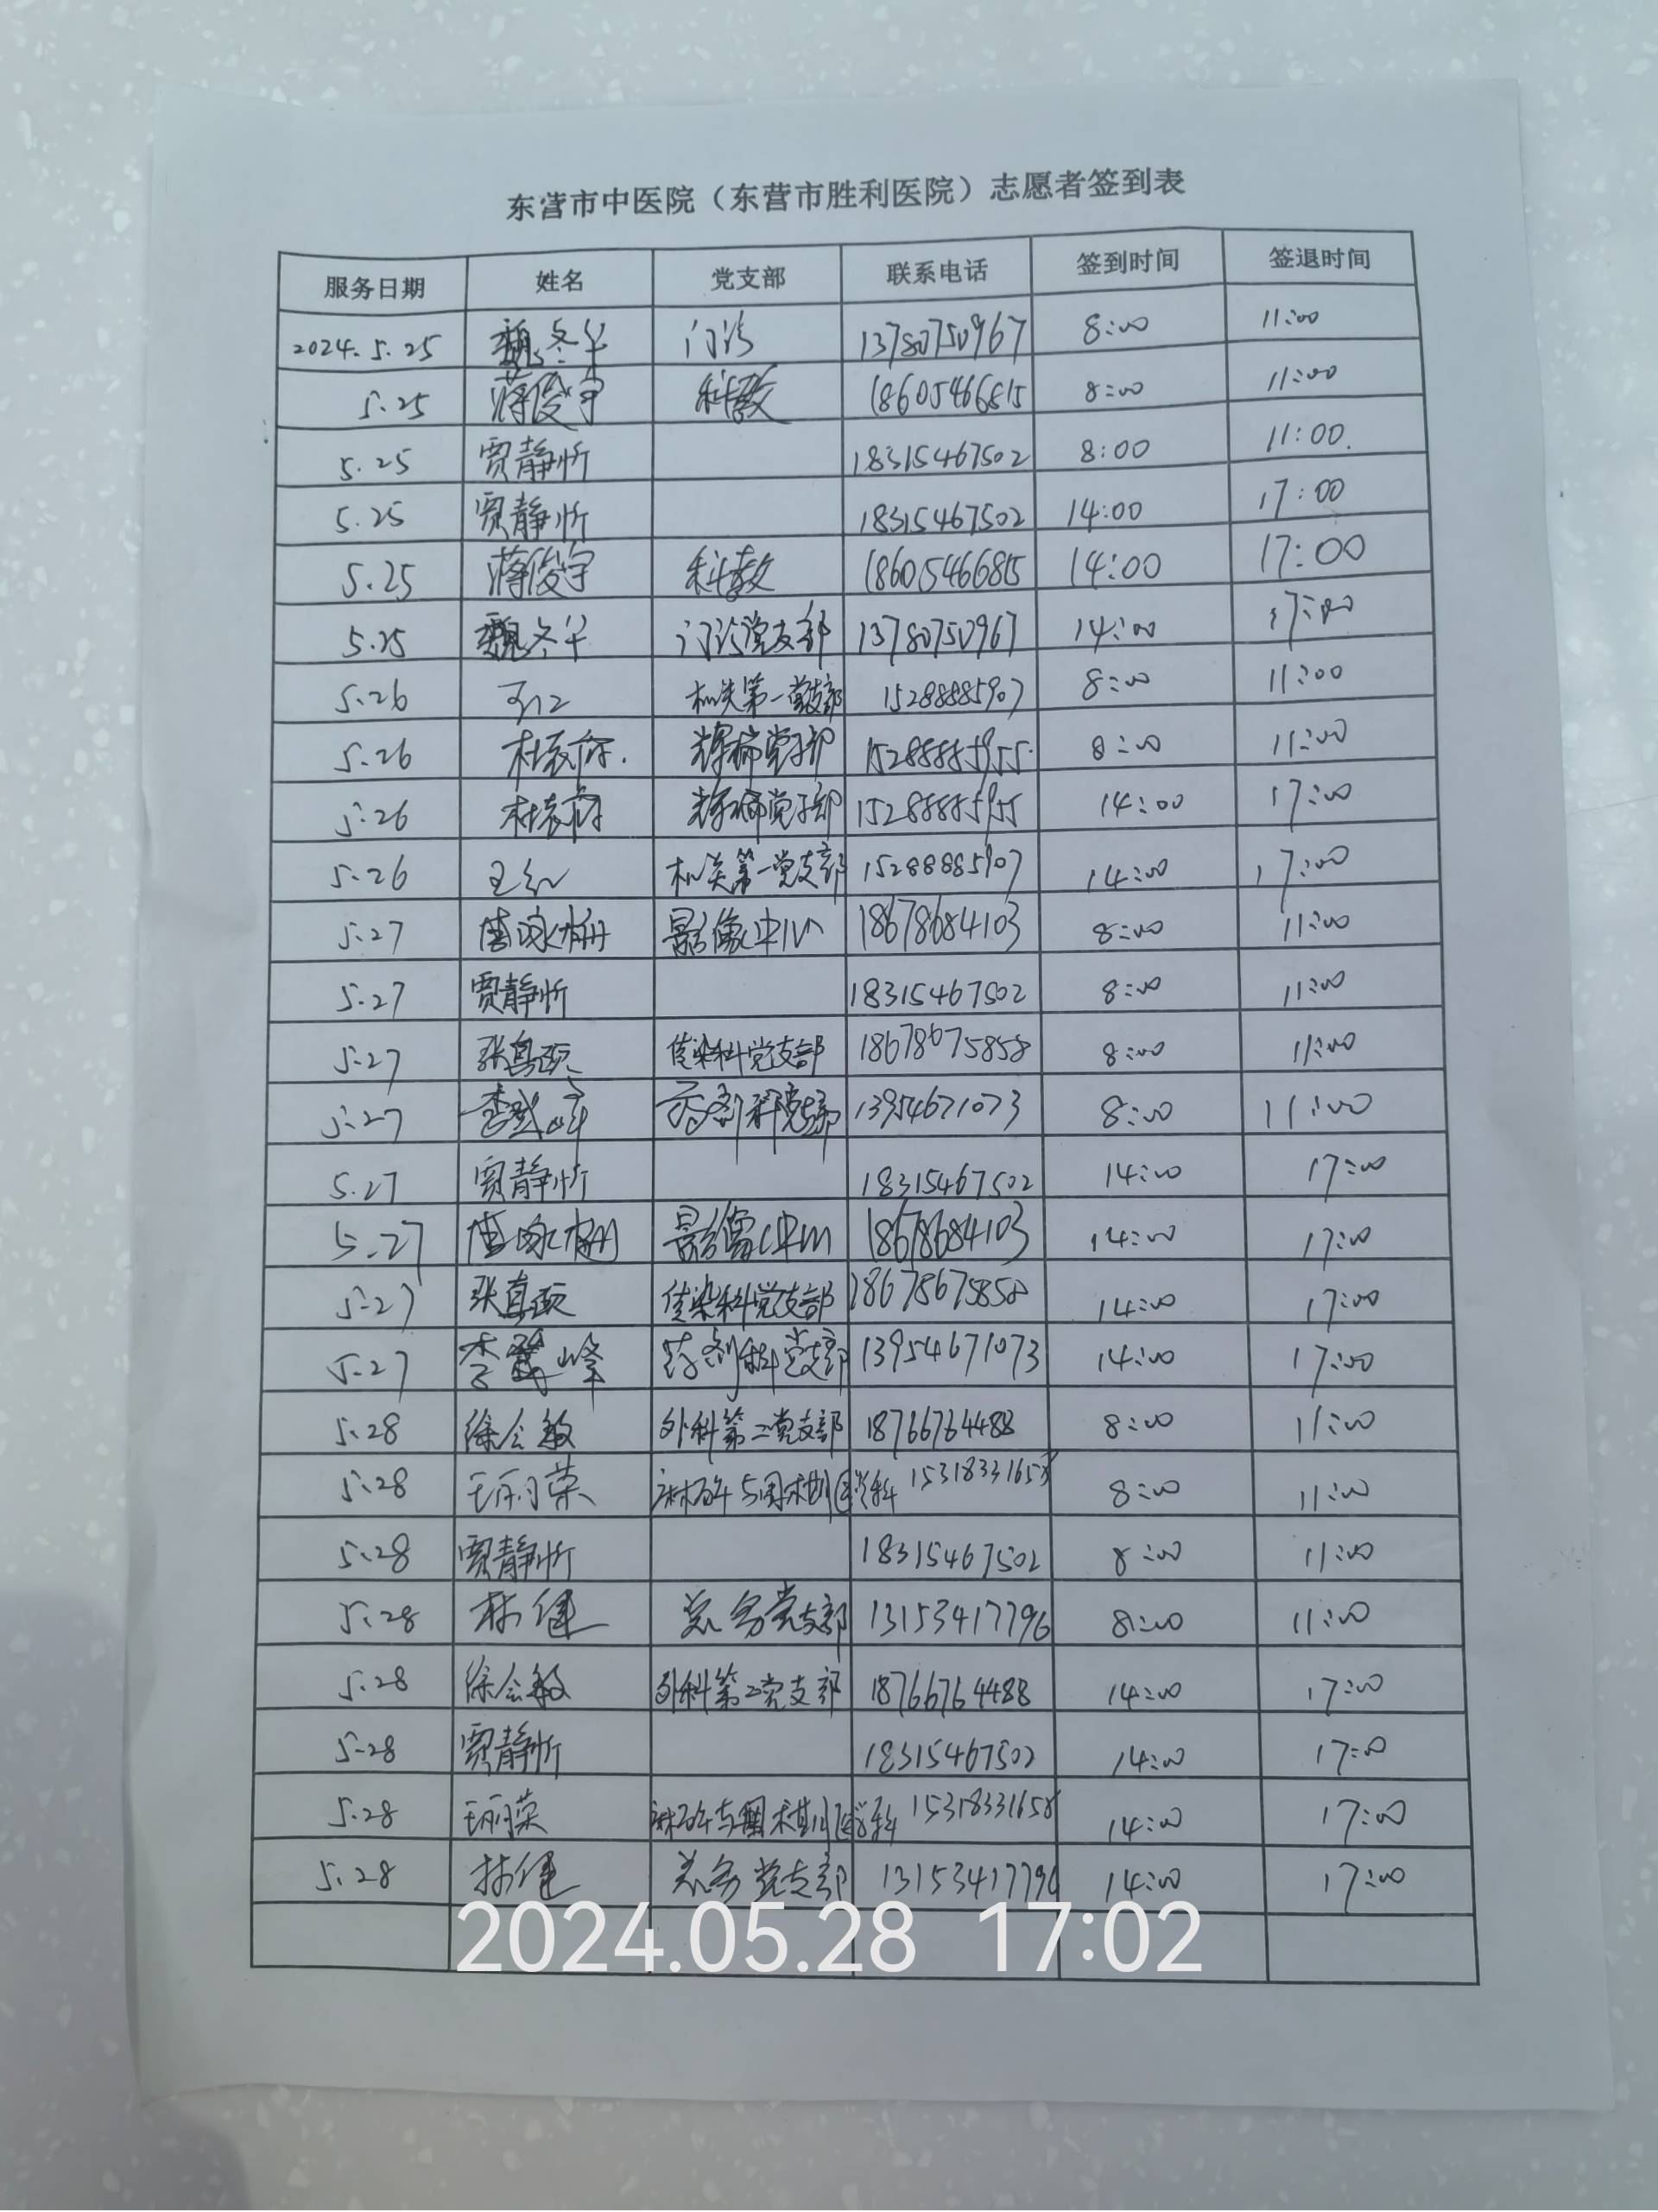 东营市中医院（东营市胜利医院）志愿者签到表
服务日期 姓名 党支部 联系电话 签到时间 签退时间
2024.5.25 魏冬华 门诊 13780750967 8:00 11:00
5.25 蒋俊宇 科教 18605466815 8:00 11:00
5.25 贾静忻 18315467502 8:00 11:00.
5.25 贾静忻 18315467502 14:00 17:00
5.25 蒋俊宇 科教 18605466815 14:00 17:00
5.25 魏冬华 门诊党支部 13780750967 14:00 17:00
5.26 机关第一党支部 15288885907 8:00 11:00
5.26 15288885955 8:00 11:00
5.26 15288885955 14:00 17:00
5.26 王红 机关第一党支部 15288885907 14:00 17:00
5.27 影像中心 18678684103 8:00 11:00
5.27 贾静忻 18315467502 8:00 11:00
5.27 张真颐 传染科党支部 18678675858 8:00 11:00
5.27 药剂科党支部 13954671073 8:00 11:00
5.27 贾静忻 18315467502 14:00 17:00
5.27 影像中心 18678684103 14:00 17:00
5.27 张真颐 传染科党支部 18678675858 14:00 17:00
5.27 药剂科党支部 13954671073 14:00 17:00
5.28 徐会敏 外科第二党支部 18766764488 8:00 11:00
5.28 王丽荣 麻醉与围术期医学科 15318331658 8:00 11:00
5.28 贾静忻 18315467502 8:00 11:00
5.28 林健 总务党支部 13153417796 8:00 11:00
5.28 徐会敏 外科第二党支部 18766764488 14:00 17:00
5.28 贾静忻 18315467502 14:00 17:00
5.28 王丽荣 麻醉与围术期医学科 15318331658 14:00 17:00
5.28 林健 总务党支部 13153417796 14:00 17:00
2024.05.28 17:02